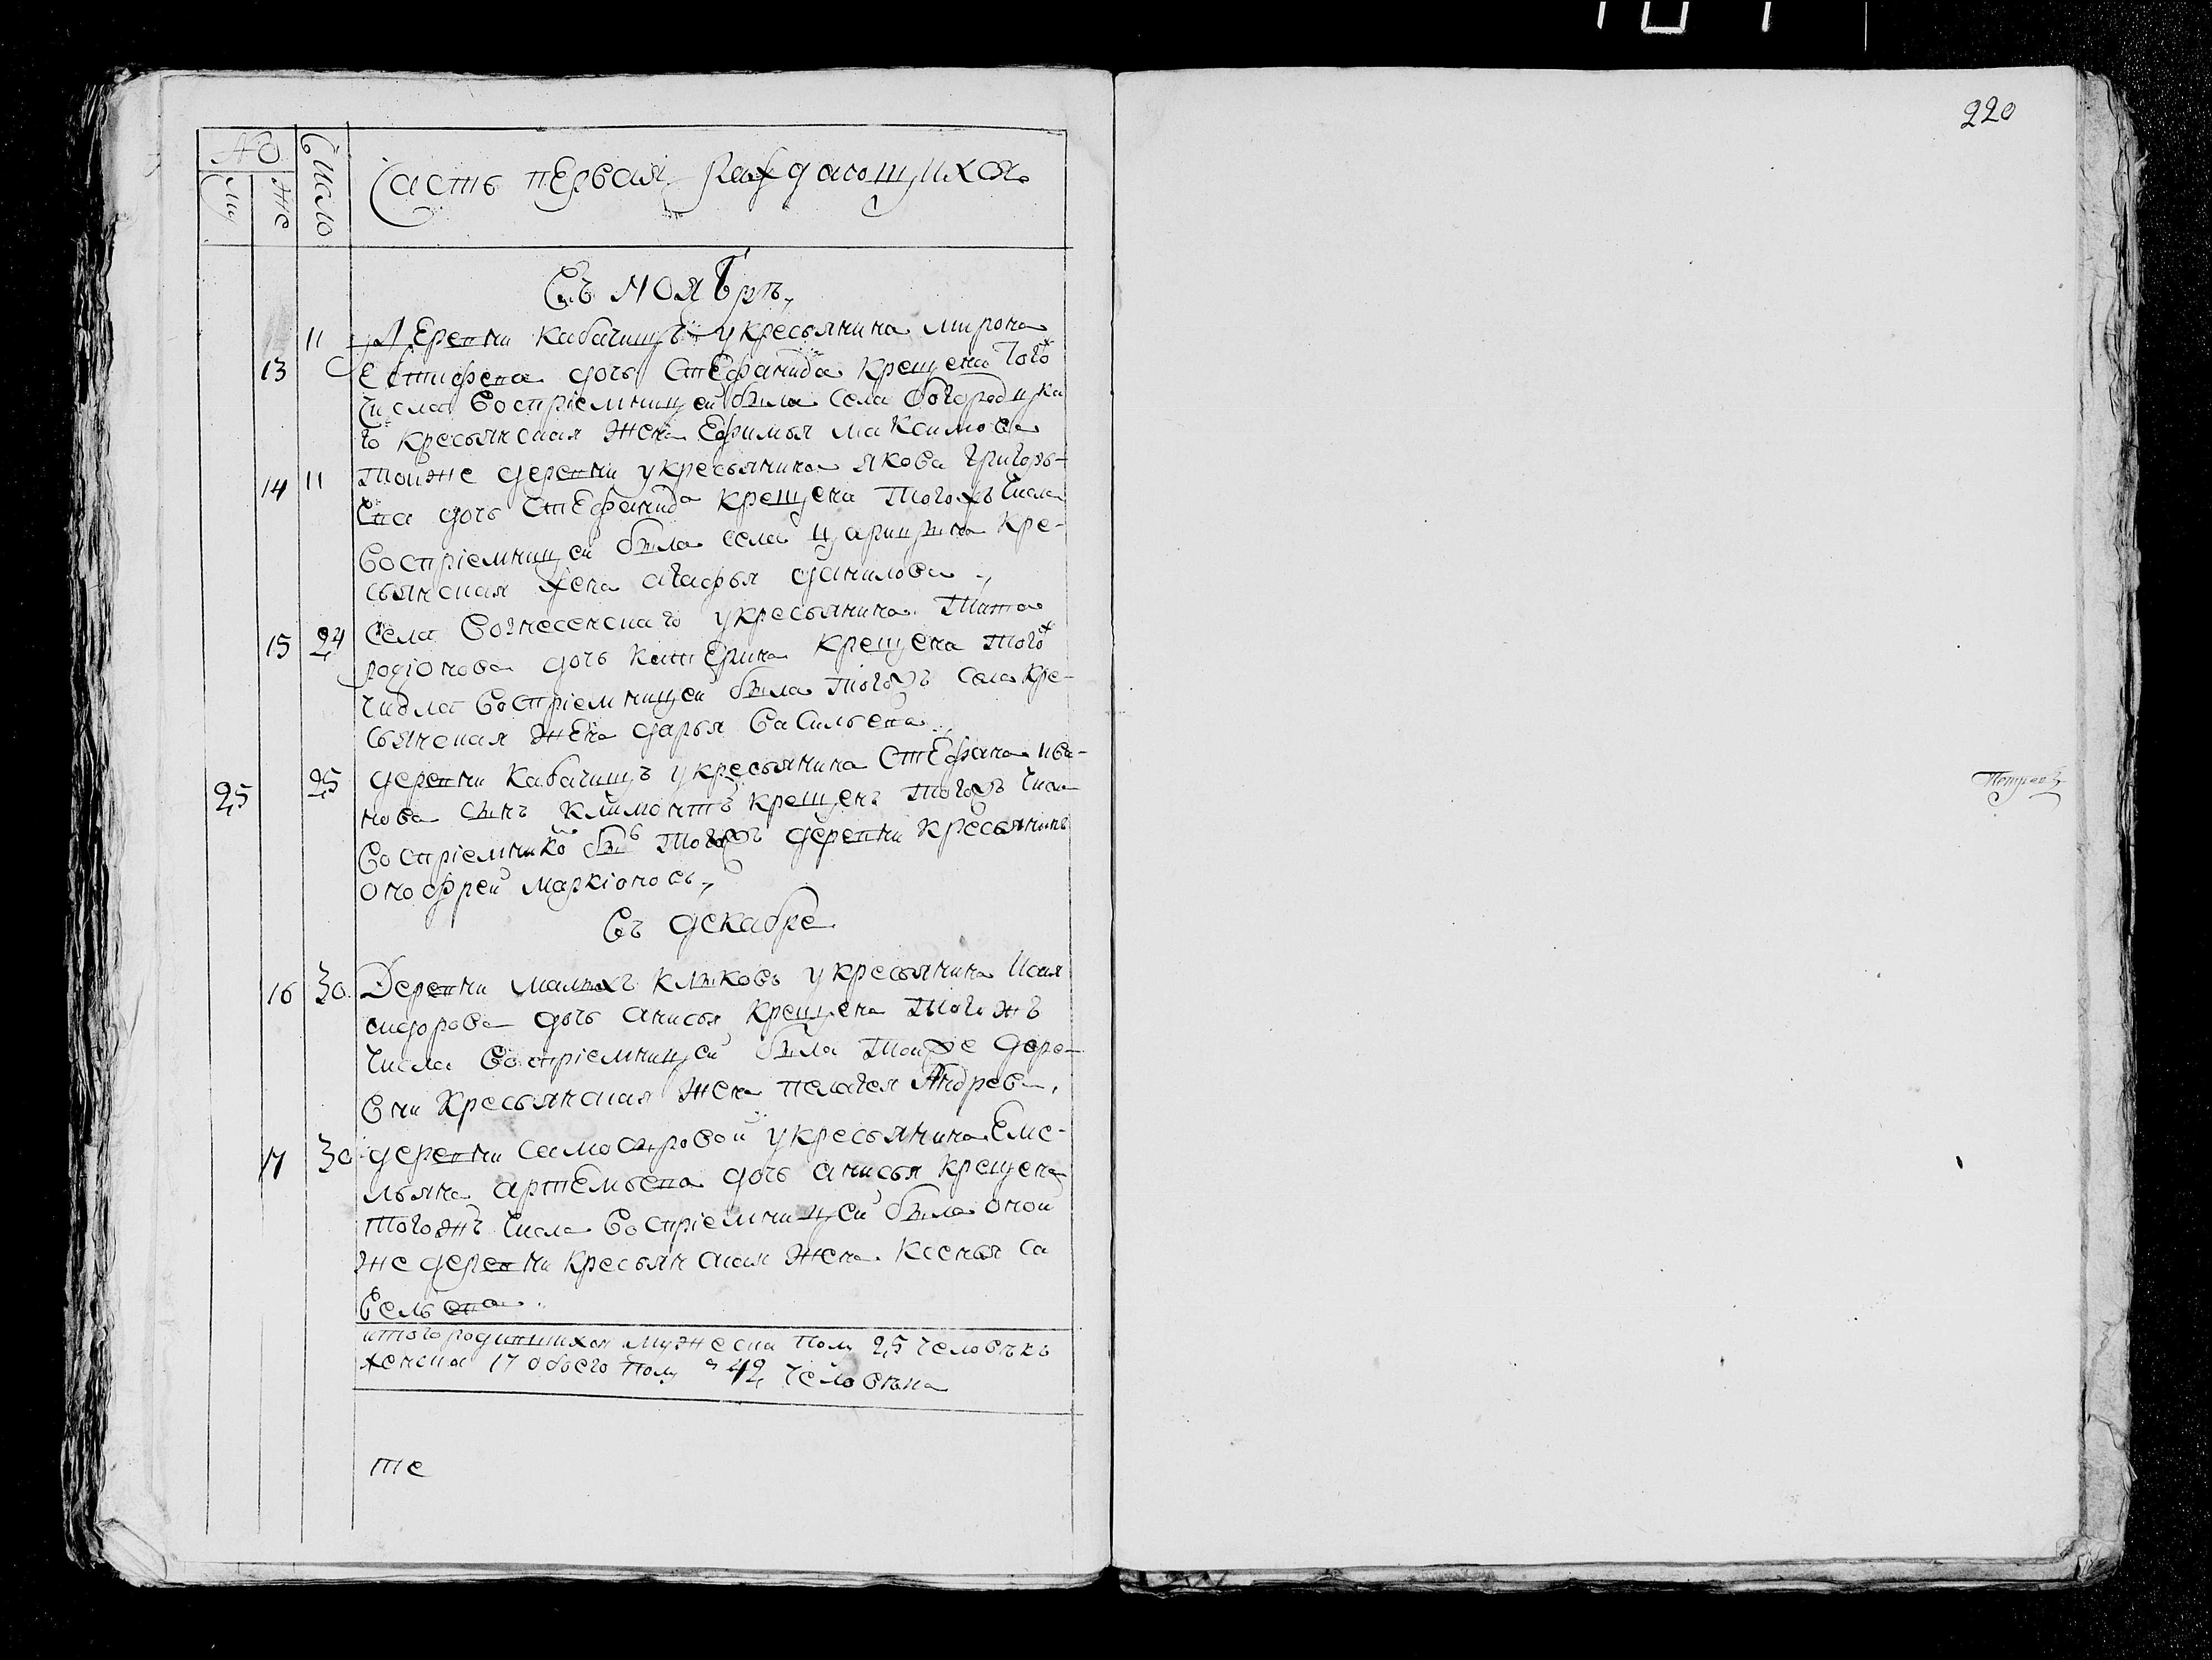 220
№
Му
Же
Число
Часть первая раждающихся
Въ ноябрѣ
11 Деревни Кабачищъ укресьянина мирона
13 Евтифева дочь Стефанида крещена того ж
числа Воспріемницей была села богородцка
го кресьянская жена Ефимья максимова
14 11 Тойже деревни укресьянина якова григорь-
ева дочь Стефанида крещена тогожъ числа
Воспріемницей была села царицына кре-
сьянская жена агафья данилова
15 24 Села Вознесенскаго укресьянина Тита
родіонова дочь катерина крещена того ж
числа воспріемницей была тогожъ села кре-
сьянская жена дарья васильева
25 25 деревни Кабачищъ укресьянина Стефана ива-
нова сынъ климонтъ крещенъ тогожъ числа
воспріемнико былъ тогожъ деревни кресьянинъ
онофрей маркіоновъ
Въ декабре
16 30 Деревни малыхъ клыковъ укресьянина Исая
сидорова дочь анисья крещена тогожъ
числа Воспріемницей была тойже дере-
вни кресьянская жена пелагея Андрева
17 30 деревни самосыровой укресьянина Еме-
льяна артемьева дочь анисья крещена
тогожъ числа Воспріемницей была оной
же деревни кресьянская жена ксенья са
вельева
итого родившихся мужеска полу 25 человѣкъ
женска 17 обоего полу 42 человѣка
те